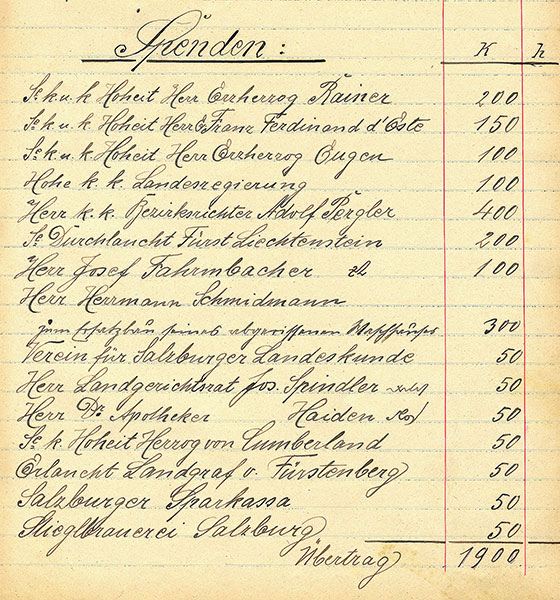 Spenden: K h
Se k. u. k. Hoheit Herr Erzherzog Rainer 200
Se k. u. k. Hoheit Herr E. Franz Ferdinand d'Este 150
Se k. u. k. Hoheit Herr Erzherzog Eugen 100
Hohe k. k. Landesregierung 100
Herr k. k. Bezirksrichter Adolf Pergler 400
Se Durchlaucht Fürst Liechtenstein 200
Herr Josef Fahrnbacher 100
Herr Herrmann Schmidmann
zum Ersatzbau seines abgerissenen Waschhauses 300
Verein für Salzburger Landeskunde 50
Herr Landgerichtsrat Jos. Spindler 50
Herr Dr. Apotheker Haiden 50
Se k. Hoheit Herzog von Cumberland 50
Erlaucht Landgraf v. Fürstenberg 50
Salzburger Sparkassa 50
Stieglbrauerei Salzburg 50
Übertrag 1900